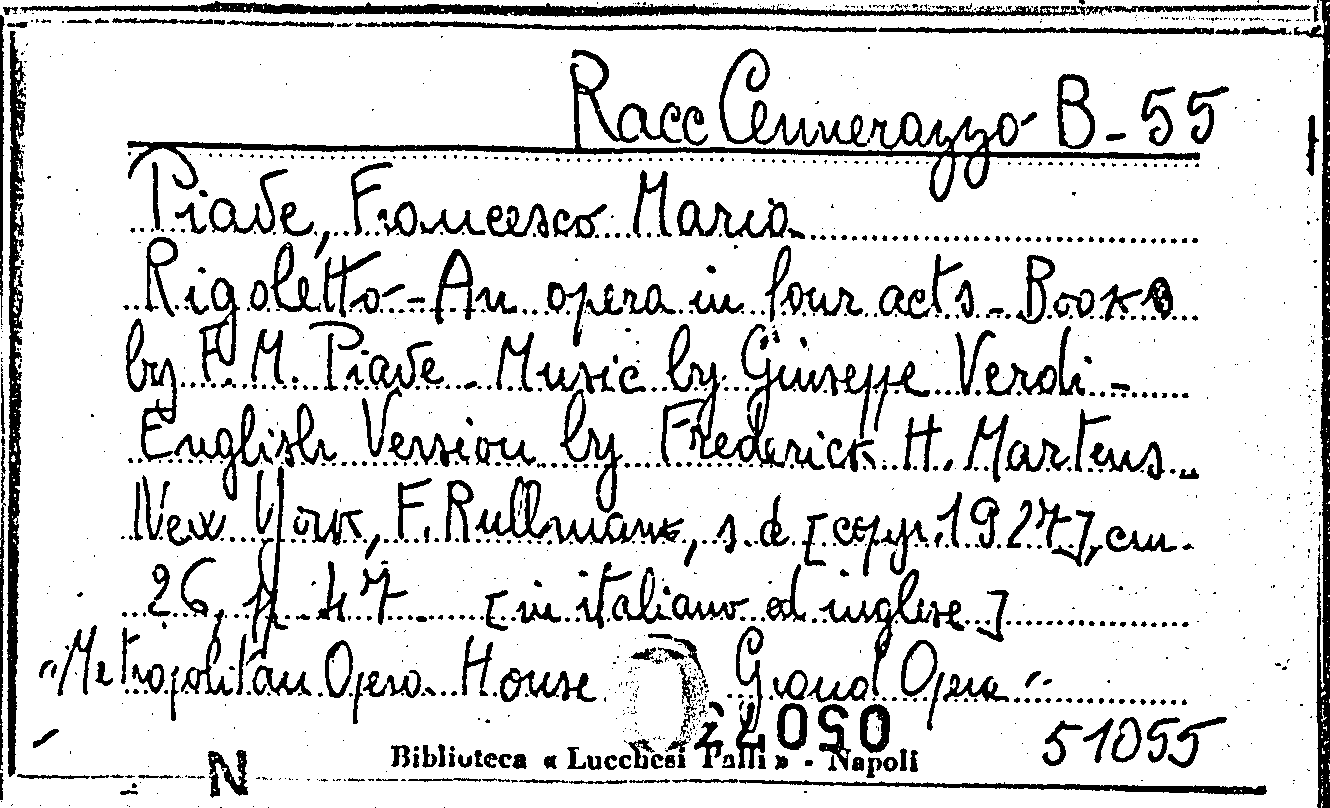 Racc Cennerazzo B-55
Piave, Francesco Maria
Rigoletto - An opera in four acts - Book
by F. M. Piave - Music by Giuseppe Verdi -
English Version by Frederick H. Martens -
New York, F. Rullmann, s.d [copyr. 1927], cm.
26, pp. 47 [in italiano ed inglese]
"Metropolitan Opera House Grand Opera"
51055
Biblioteca « Lucchesi Palli » - Napoli
N